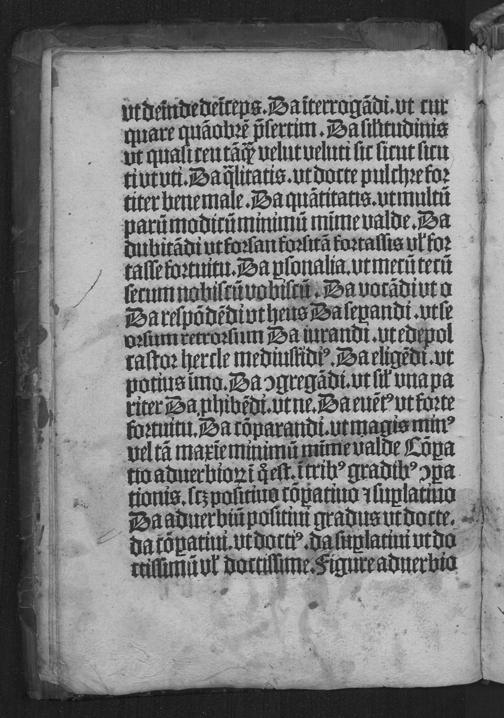 vt deīndedeīceps. Da īterrogādi. vt cur
quare quāobrē p̄sertim. Da silitudinis
vt quasi ceu tāq̄ velut veluti sic sicut sicu
ti vt vti. Da q̄litatis. vt docte pulchre for
titer bene male. Da quātitatis. vt multū
parū modicū minimū mīme valde. Da
dubitādi vt forsan forsitā fortassis vl̓ for
tasse fortuitu. Da ꝑsonalia. vt mecū tecū
secum nobiscū vobiscū. Da vocādi vt o
Da respōdēdi vt heus Da sepandi. vt se
orsum retrorsum Da iurandi. vt edepol
castor hercle mediusfidiꝰ. Da eligēdi. vt
potius īmo. Da ꝯgregādi. vt sil̓ vna pa
riter Da ꝓhibēdi. vt ne. Da euētꝰ vt forte
fortuitu. Da cōparandi. vt magis minꝰ
vel tā maxīe minimū mīme valde Cōpa
tio aduerbioꝝ ī q̊ est. ī tribꝰ gradibꝰ ꝯpa
tionis. scꝫ positiuo cōpatiuo ⁊ suꝑlatiuo
Da aduerbiū positiui gradus vt docte.
da cōpatiui. vt doctiꝰ. da suꝑlatiui vt do
ctissimū vl̓ doctissime. Figure aduerbio